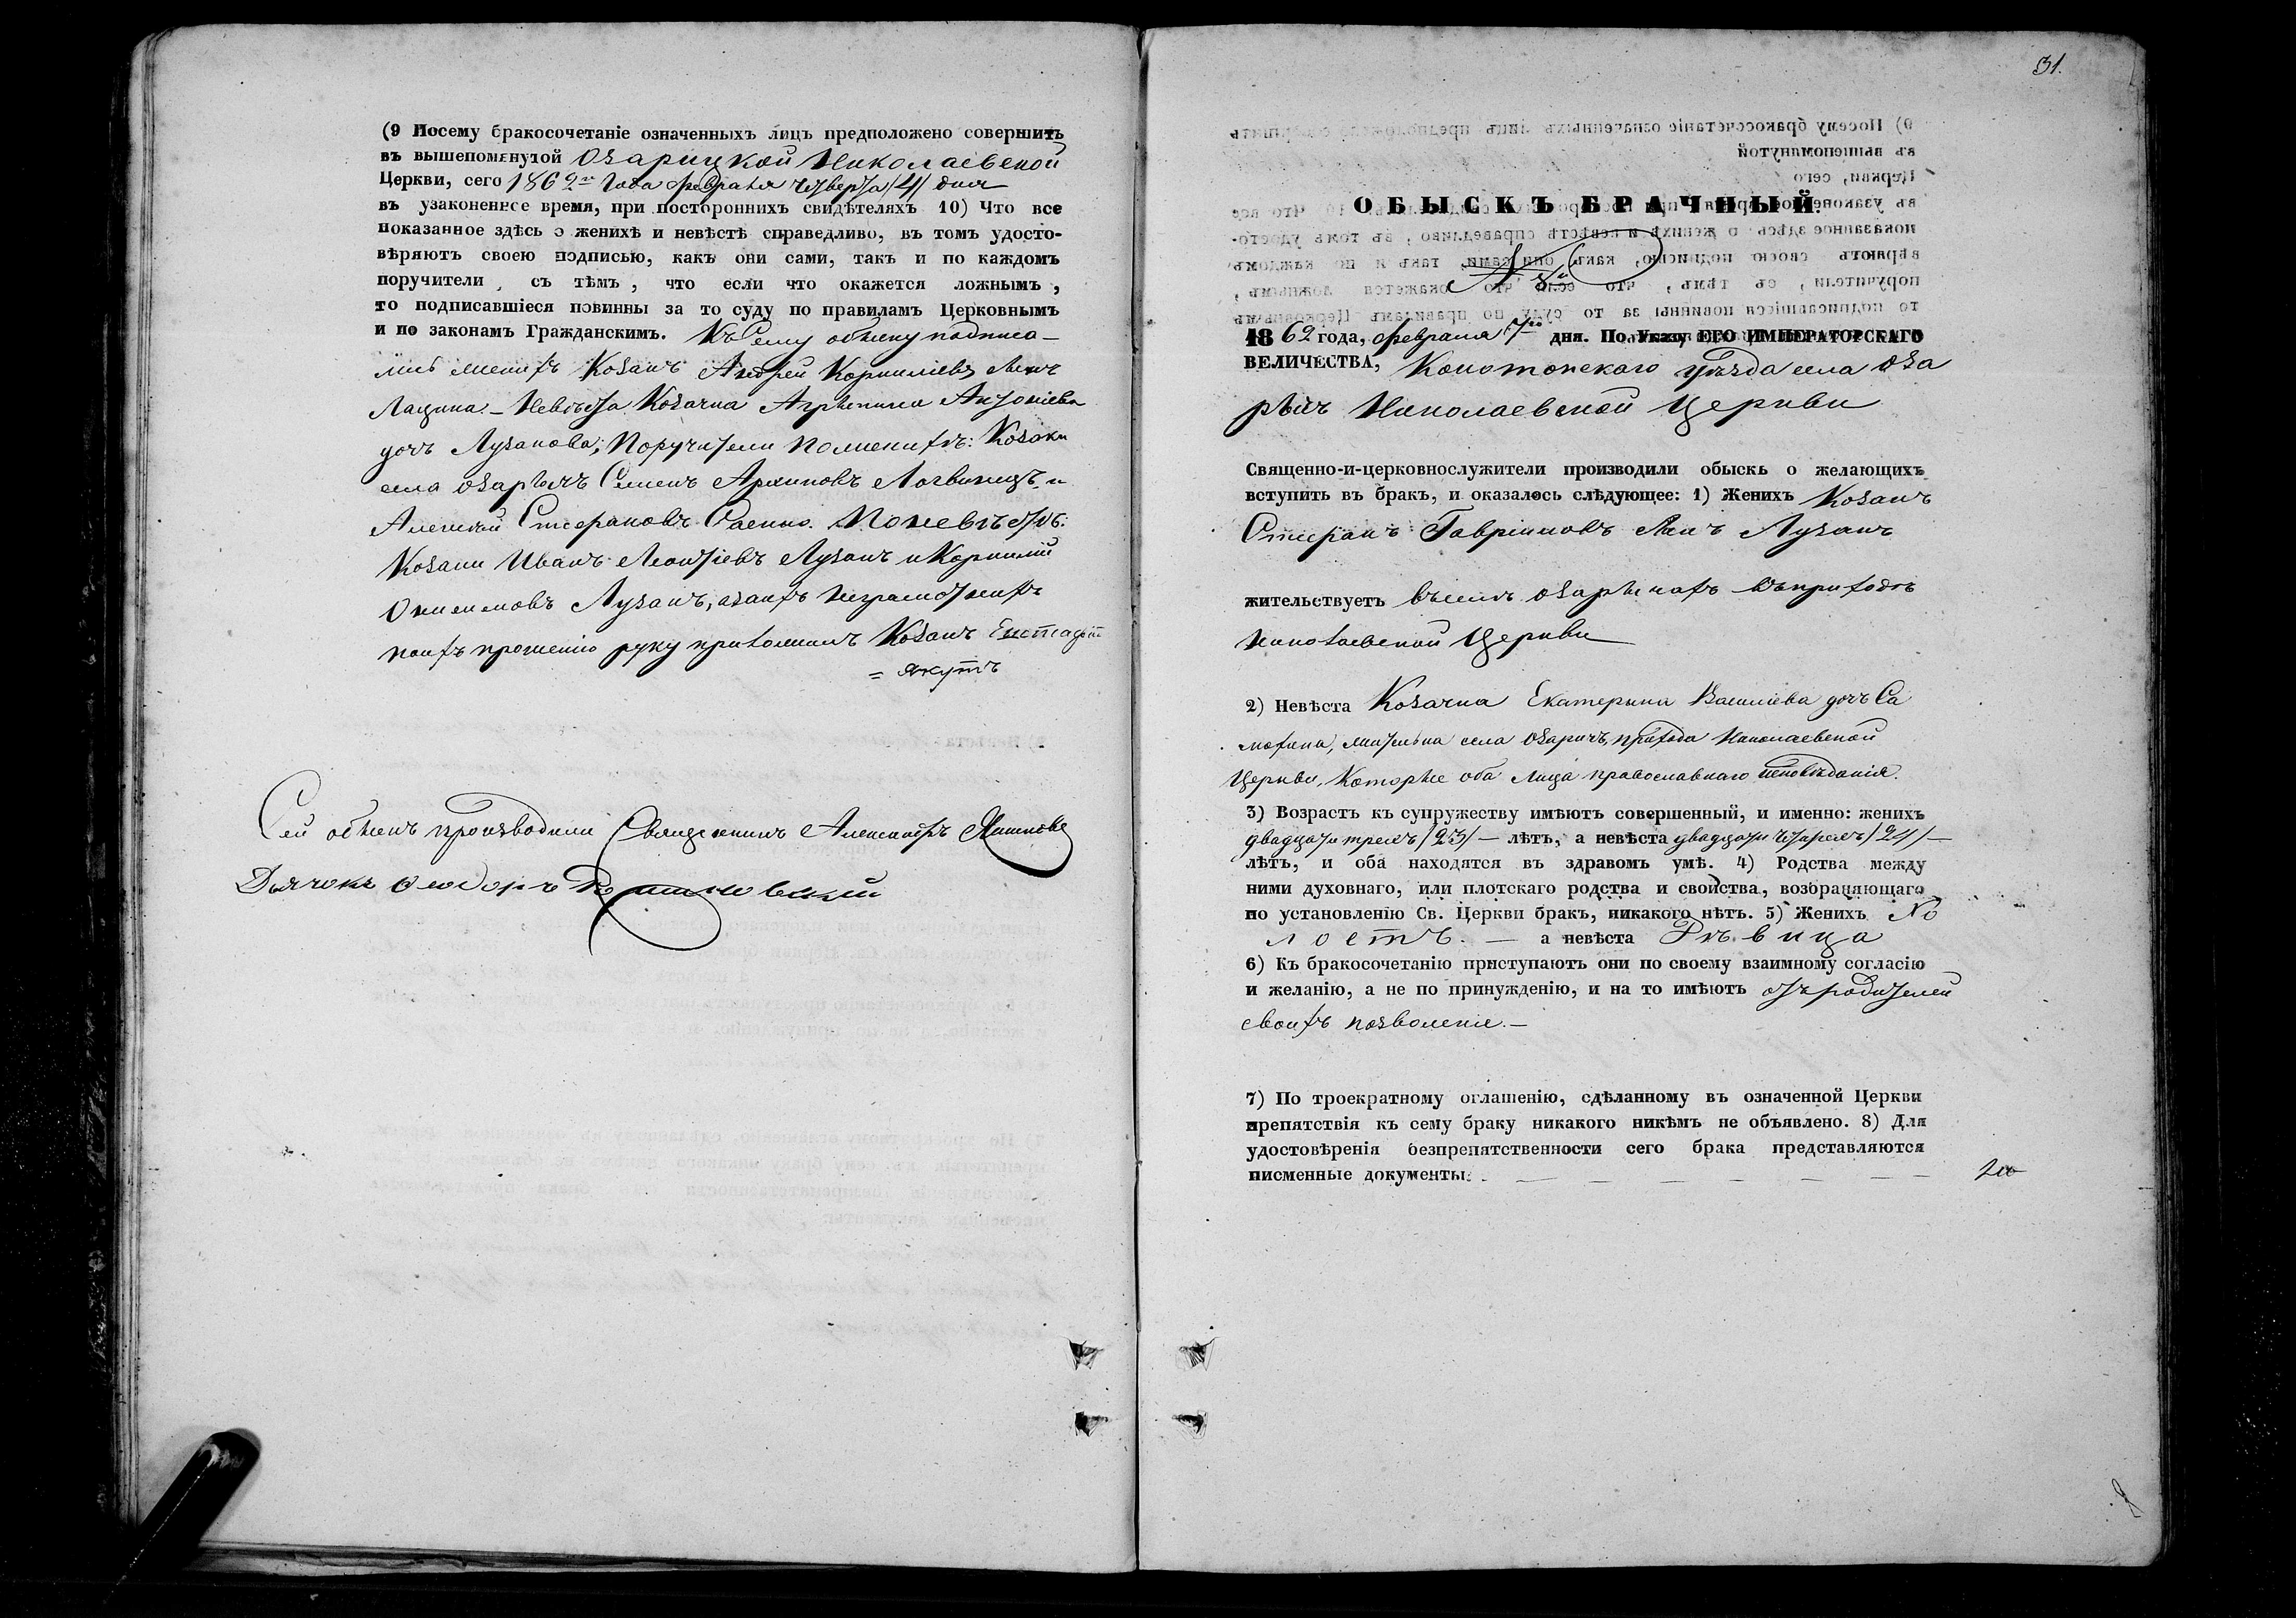 (9 Посему бракосочетаніе означенныхъ лицъ предположено совершить
въ вышепомянутой Озарицкой Николаевской
Церкви, сего 1862го Года февраля четверта /4/ дня
въ узаконенное время, при постороннихъ свидѣтеляхъ 10) Что все
показанное здѣсь о женихѣ и невѣстѣ справедливо, въ томъ удосто-
вѣряютъ своею подписью, какъ они сами, такъ и по каждомъ
поручители, съ тѣмъ, что если что окажется ложнымъ,
то подписавшіеся повинны за то суду по правиламъ Церковнымъ
и по законамъ Гражданскимъ. Къ Сему обыску подписа-
лись женихъ Козакъ Андрей Корниліевъ
Невѣста Козачка Агрипина Антоніева
дочь Лузанова; Поручители по женихѣ: Козаки
села Озаричъ Семенъ Архиповъ и
Алексѣй Стефановъ Саенко. По невѣстѣ:
Козаки Иванъ Леонтіевъ Лузанъ и Корнилій
Онисимовъ Лузанъ, а за ихъ неграмотныхъ
по ихъ прошенію руку приложилъ Козакъ
= Якутъ
Сей обыскъ производили Священникъ Александръ
Дьячокъ Ѳеодоръ
31.
ОБЫСКЪ БРАЧНЫЙ.
№ 8й
1862 года, февраля 7го дня. По Указу ЕГО ИМПЕРАТОРСКАГО
ВЕЛИЧЕСТВА, Конотопскаго уѣзда села Оза
ричъ Николаевской Церкви
Священно-и-церковнослужители производили обыскъ о желающихъ
вступить въ бракъ, и оказалось слѣдующее: 1) Женихъ Козакъ
Стефанъ Гавріиловъ Лузанъ
жительствуетъ въ селѣ Озаричахъ въ приходѣ
Николаевской Церкви
2) Невѣста Козачка Екатерина Василіева дочь Са
мохина, жителька села Озаричъ, прихода Николаевской
Церкви, Которые оба Лица православнаго исповѣданія.
3) Возрастъ къ супружеству имѣютъ совершенный, и именно: женихъ
двадцати трехъ /23/ — лѣтъ, а невѣста двадцати четырехъ /24/ —
лѣтъ, и оба находятся въ здравомъ умѣ. 4) Родства между
ними духовнаго, или плотскаго родства и свойства, возбраняющаго
по установленію Св. Церкви бракъ, никакого нѣтъ. 5) Женихъ Хо
лостъ. — а невѣста Дѣвица
6) Къ бракосочетанію приступаютъ они по своему взаимному согласію
и желанію, а не по принужденію, и на то имѣютъ отъ родителей
своихъ позволеніе. —
7) По троекратному оглашенію, сдѣланному въ означенной Церкви
препятствія къ сему браку никакого никѣмъ не объявлено. 8) Для
удостовѣренія безпрепятственности сего брака представляются
писменные документы: